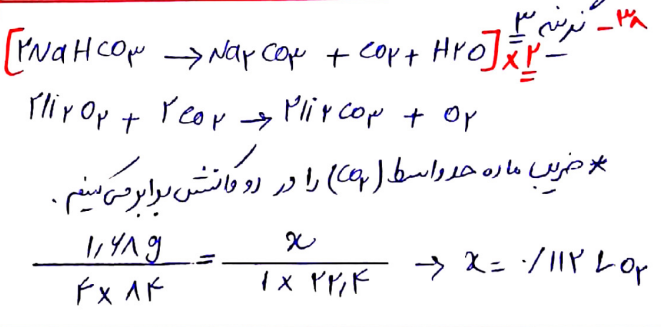 ۳۸- گزینه ۳
[۲NaHCO۳ → Na۲CO۳ + CO۲ + H۲O] ×۲
۲Li۲O۲ + ۲CO۲ → ۲Li۲CO۳ + O۲
* ضریب ماده حدواسط (CO۲) را در دو واکنش برابر می کنیم.
۱,۶۸ g / ۴ × ۸۴ = x / ۱ × ۲۲,۴ → x = ۰/۱۱۲ L O۲